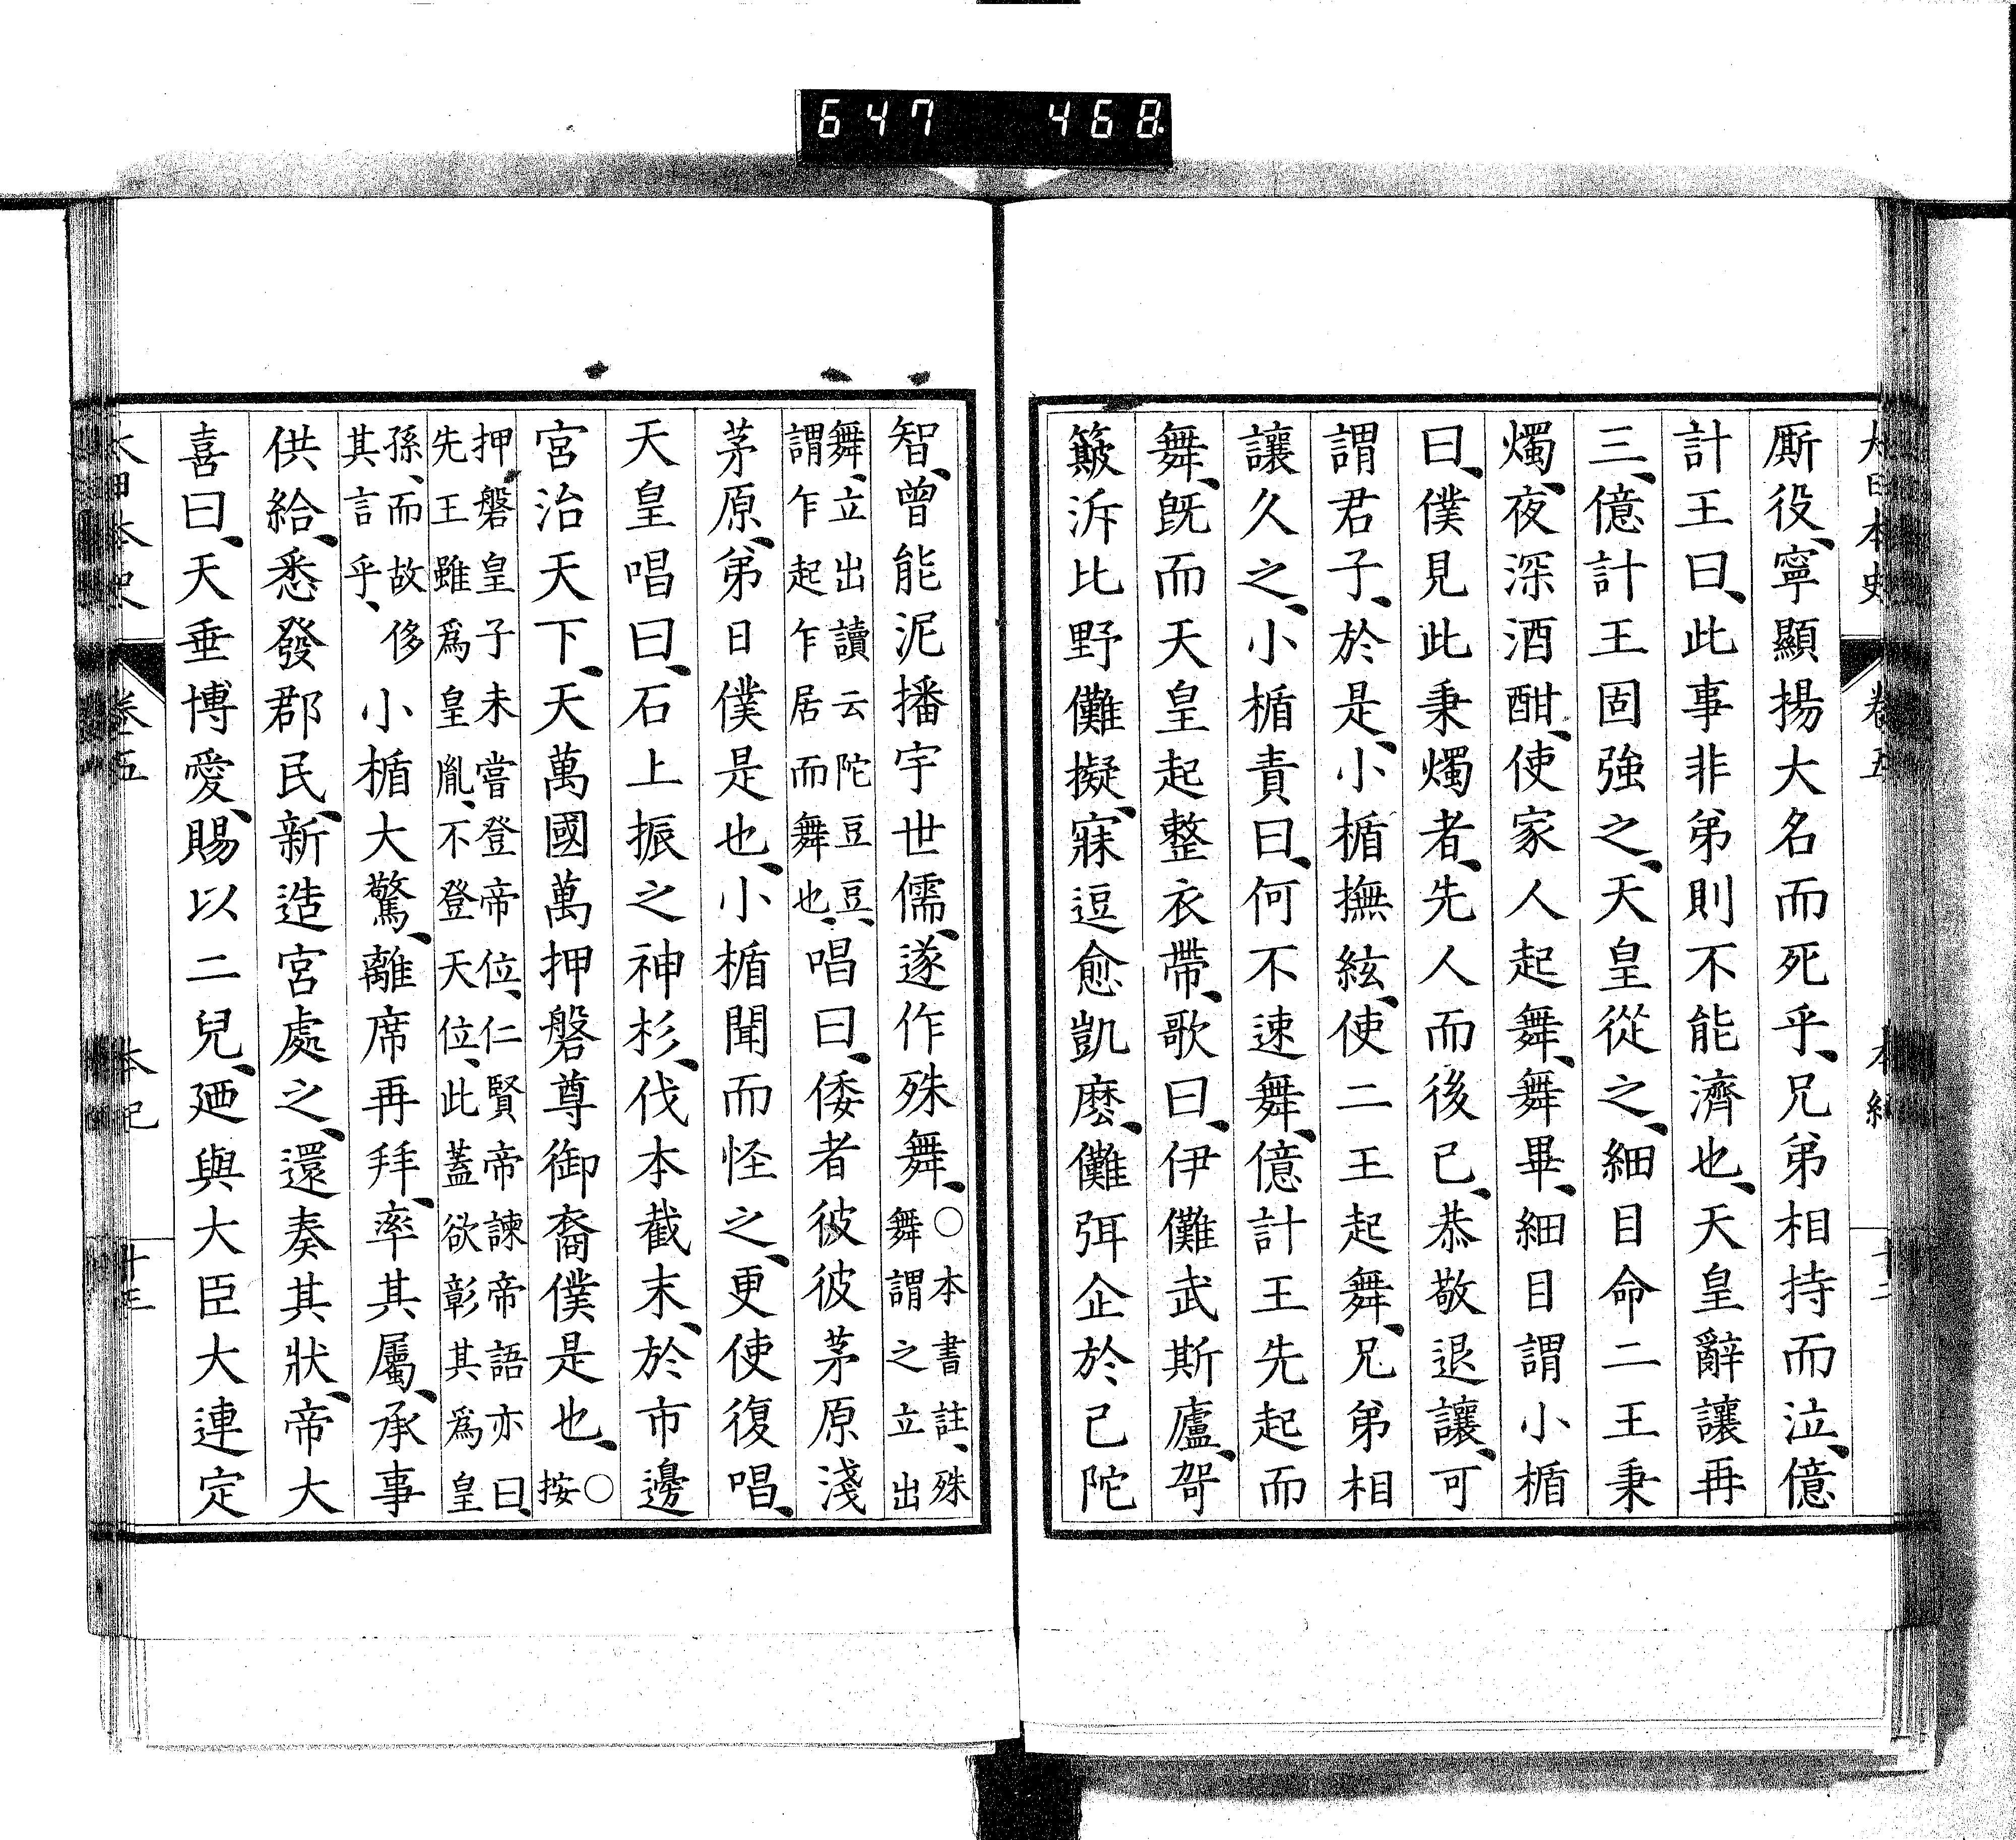 647 468
大日本史 卷五 本紀 十二
厮役、寧顯揚大名而死乎、兄弟相持而泣、億
計王曰、此事非弟則不能濟也、天皇辭讓再
三、億計王固強之、天皇從之、細目命二王秉
燭、夜深酒酣、使家人起舞、舞畢、細目謂小楯
曰、僕見此秉燭者、先人而後已、恭敬退讓、可
謂君子、於是、小楯撫絃、使二王起舞、兄弟相
讓久之、小楯責曰、何不速舞、億計王先起而
舞、既而天皇起整衣帶、歌曰、伊儺武斯廬、哿
簸泝比野儺擬、寐逗愈凱麽、儺弭企於己陀
智、曾能泥播宇世儒、遂作殊舞、○本書註、殊
舞謂之立出
舞、立出讀云陀豆豆、
謂乍起乍居而舞也、唱曰、倭者彼彼茅原淺
茅原、弟日僕是也、小楯聞而怪之、更使復唱、
天皇唱曰、石上振之神杉、伐本截末、於市邊
宮治天下、天萬國萬押磐尊御裔僕是也、○
按
押磐皇子未嘗登帝位、仁賢帝諫帝語亦曰、
先王雖爲皇胤、不登天位、此蓋欲彰其爲皇
孫、而故侈
其言乎、小楯大驚、離席再拜、率其屬、承事
供給、悉發郡民、新造宮處之、還奏其狀、帝大
喜曰、天垂博愛、賜以二兒、廼與大臣大連定
大日本史 卷五 本紀 十三